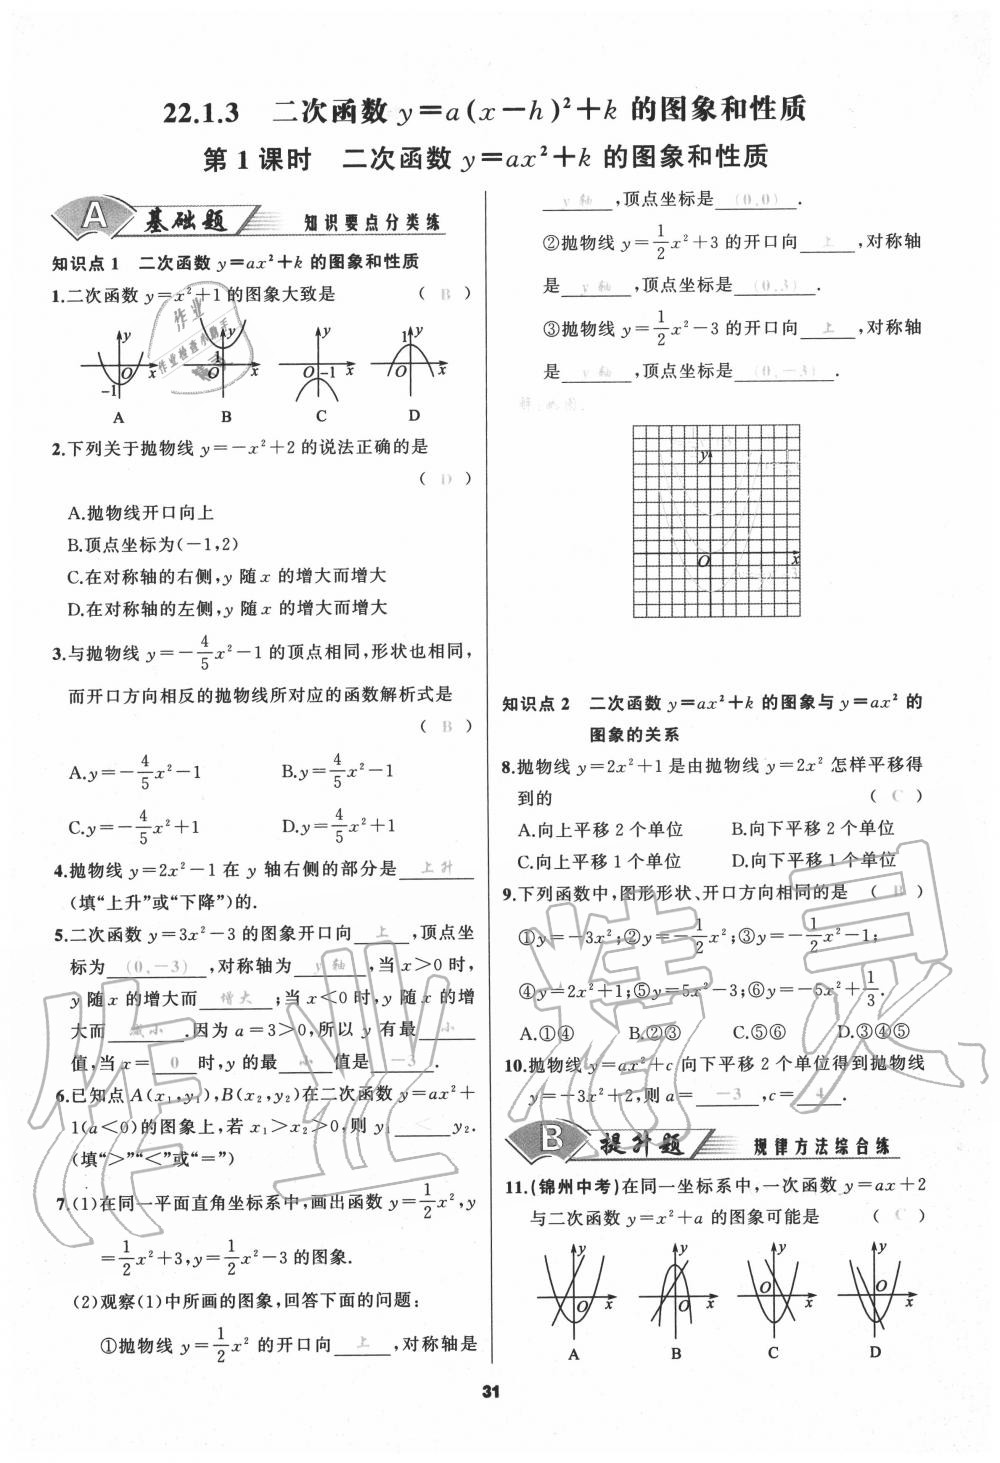 22.1.3 二次函数 y=a(x-h)²+k 的图象和性质
第1课时 二次函数 y=ax²+k 的图象和性质
A 基础题 知识要点分类练
知识点1 二次函数 y=ax²+k 的图象和性质
1.二次函数 y=x²+1的图象大致是 ( B )
y -1 O x
y 1 O x
y O -1 x
y 1 O x
A B C D
2.下列关于抛物线 y=-x²+2的说法正确的是
( D )
A.抛物线开口向上
B.顶点坐标为(-1,2)
C.在对称轴的右侧,y 随 x 的增大而增大
D.在对称轴的左侧,y 随 x 的增大而增大
3.与抛物线 y=-4/5x²-1的顶点相同,形状也相同,
而开口方向相反的抛物线所对应的函数解析式是
( B )
A.y=-4/5x²-1 B.y=4/5x²-1
C.y=-4/5x²+1 D.y=4/5x²+1
4.抛物线 y=2x²-1在 y 轴右侧的部分是 上升
(填“上升”或“下降”)的.
5.二次函数 y=3x²-3的图象开口向 上 ,顶点坐
标为 (0,-3) ,对称轴为 y轴 ,当 x>0时,
y 随 x 的增大而 增大 ;当 x<0时,y 随 x 的增
大而 减小 .因为 a=3>0,所以 y 有最 小
值,当 x= 0 时,y 的最 小 值是 -3 .
6.已知点 A(x₁,y₁),B(x₂,y₂)在二次函数 y=ax²+
1(a<0)的图象上,若 x₁>x₂>0,则 y₁ < y₂.
(填“>”“<”或“=”)
7.(1)在同一平面直角坐标系中,画出函数 y=1/2x²,y
=1/2x²+3,y=1/2x²-3的图象.
(2)观察(1)中所画的图象,回答下面的问题:
①抛物线 y=1/2x² 的开口向 上 ,对称轴是
y轴 ,顶点坐标是 (0,0) .
②抛物线 y=1/2x²+3的开口向 上 ,对称轴
是 y轴 ,顶点坐标是 (0,3) .
③抛物线 y=1/2x²-3的开口向 上 ,对称轴
是 y轴 ,顶点坐标是 (0,-3) .
解:如图.
y
O x
知识点2 二次函数 y=ax²+k 的图象与 y=ax² 的
图象的关系
8.抛物线 y=2x²+1是由抛物线 y=2x² 怎样平移得
到的 ( C )
A.向上平移2个单位 B.向下平移2个单位
C.向上平移1个单位 D.向下平移1个单位
9.下列函数中,图形形状、开口方向相同的是 ( B )
①y=-3x²;②y=-1/2x²;③y=-1/2x²-1;
④y=2x²+1;⑤y=5x²-3;⑥y=-5x²+1/3.
A.①④ B.②③ C.⑤⑥ D.③④⑤
10.抛物线 y=ax²+c 向下平移2个单位得到抛物线
y=-3x²+2,则 a= -3 ,c= 4 .
B 提升题 规律方法综合练
11.(锦州中考)在同一坐标系中,一次函数 y=ax+2
与二次函数 y=x²+a 的图象可能是 ( C )
y O x
y O x
y O x
y O x
A B C D
31
作业精灵
作业
作业检查小助手